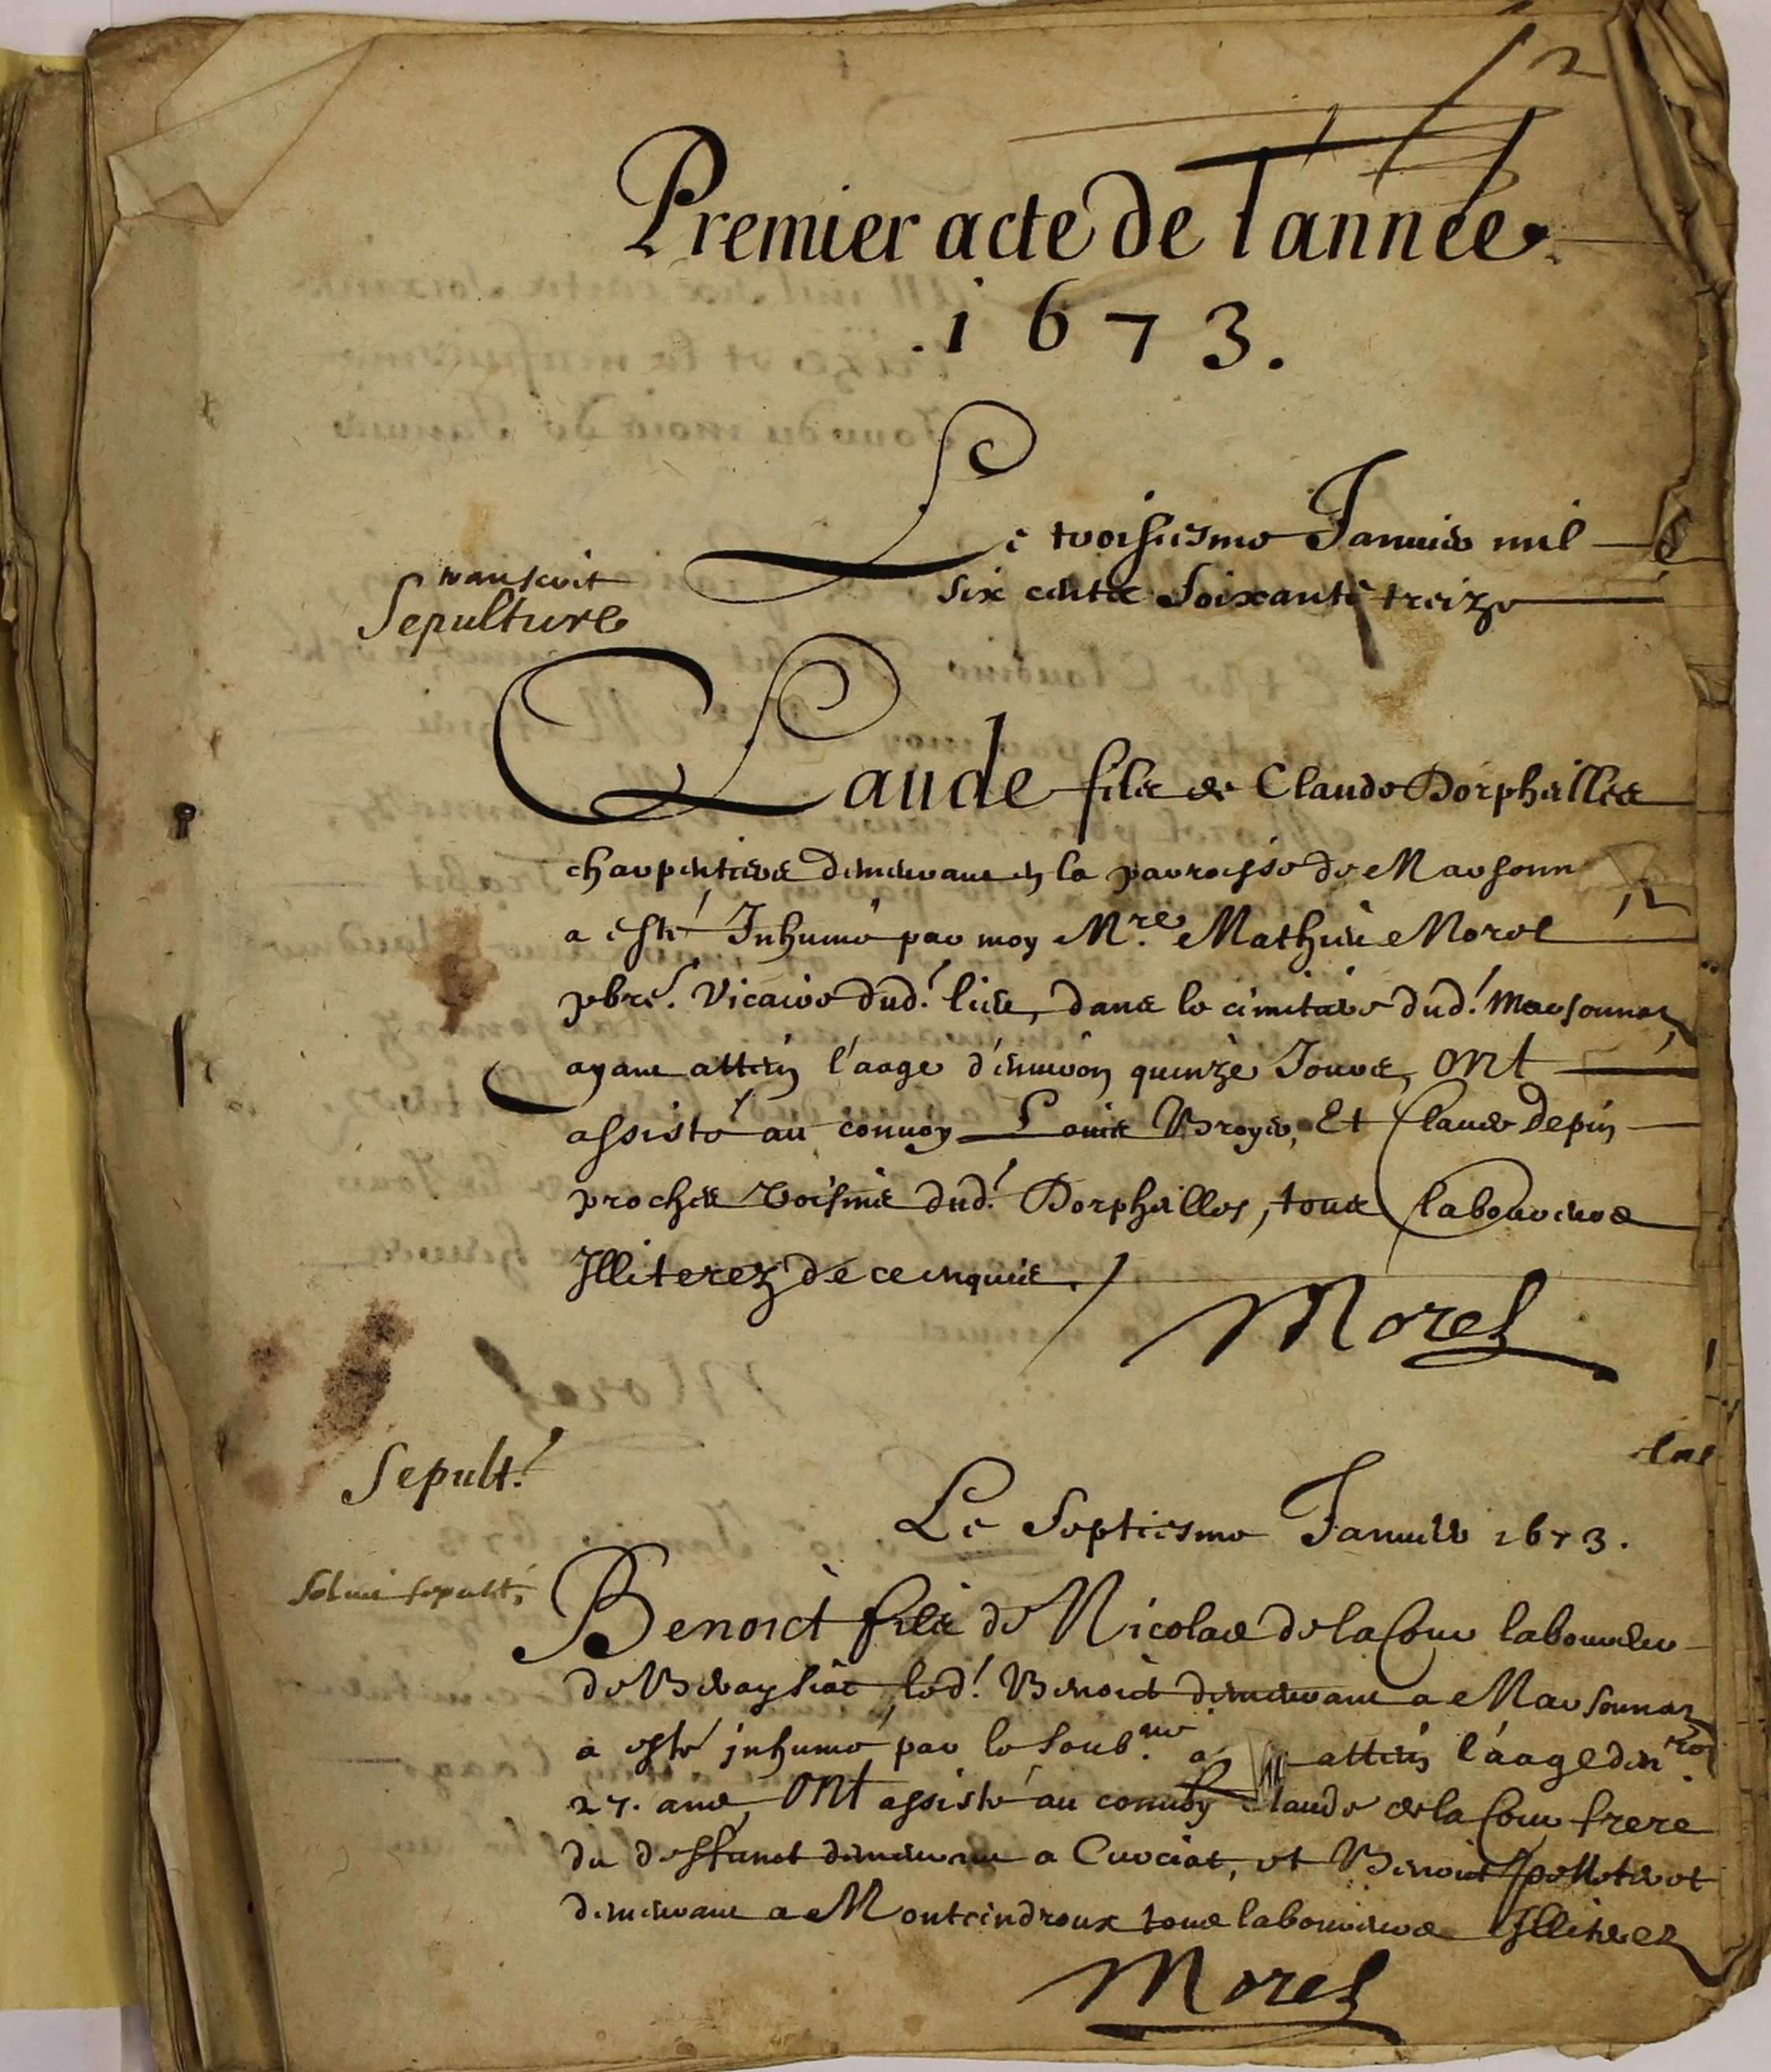 2
Premier acte de l'année
.1673.
Le troisiesme Januier mil
six cents soixante treize
transcrit
Sepulture
Claude fils de Claude Dorpheilles
charpentiers demeurant en la parroisse de Marsonn
12
a esté Inhumé par moy M.re Mathieu Morel
pbre. vicaire dud. lieu, dans le cimitiere dud. Marsonnaz
ayant attein l'aage d'enuiron quinze Jours, ont
assisté au conuoy Louis Broyer, Et Claude Depin
proches voisins dud. Dorpheilles, tous laboureurs
Illiterez de ce enquis.
Morel
Sepult.
Le Septiesme Januier 1673.
sepult.
Benoict fils de Nicolas de la Cour laboureur
de Bereysiat, led. Benoict demeurant a Marsonnaz
a esté inhumé par le soub.ne attein l'aage den.ron
27. ans, ont assisté au conuoy Claude de la Cour frere
du deffunct demeurant a Curciat, et Benoict
demeurant a Montcindroux tous laboureurs Illiterez
Morel